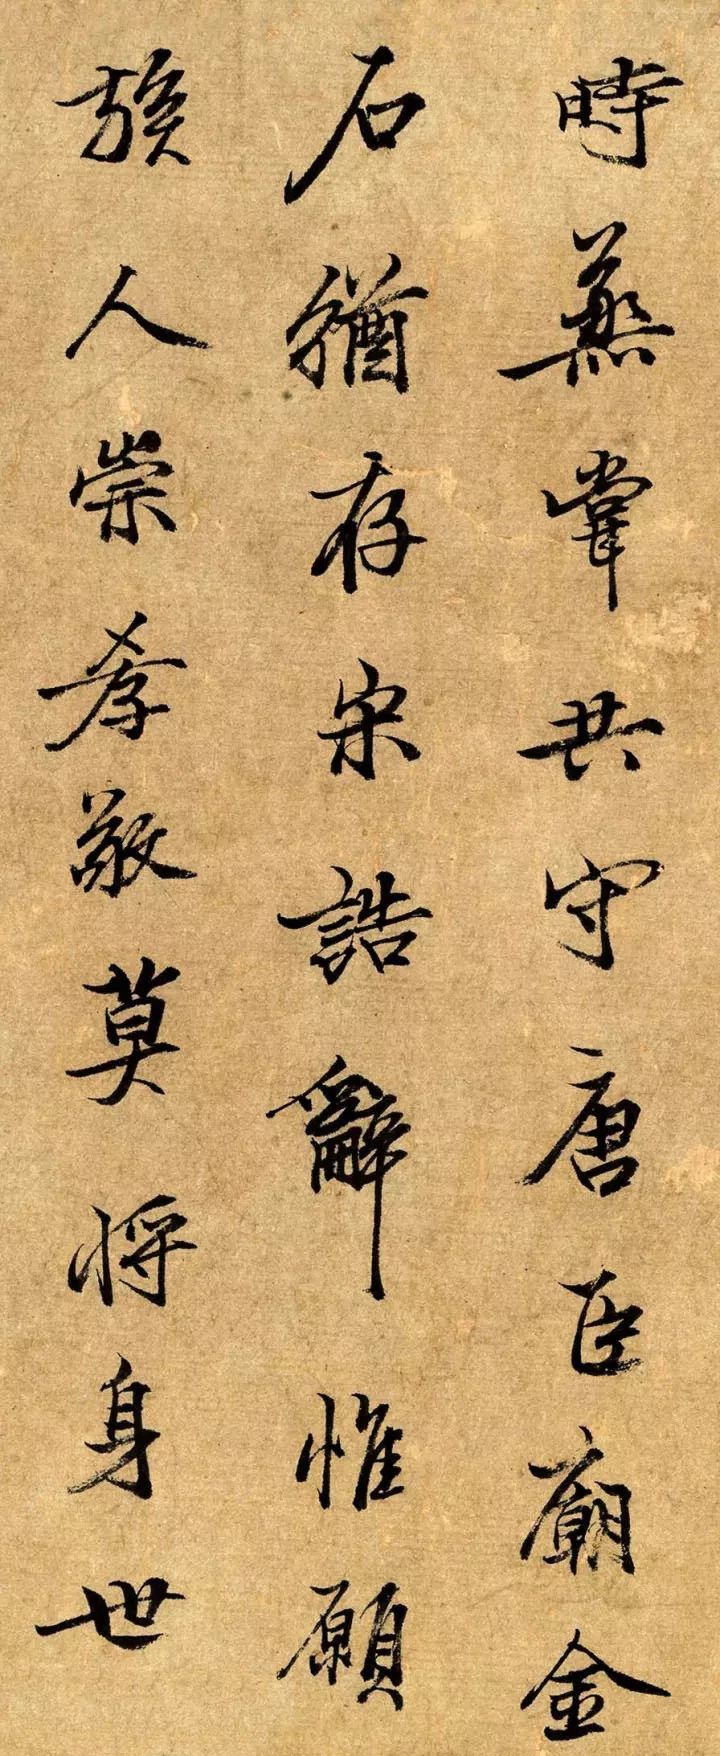 時蒸嘗共守唐臣廟金
石猶存宋誥辭惟願
族人崇孝敬莫將身世